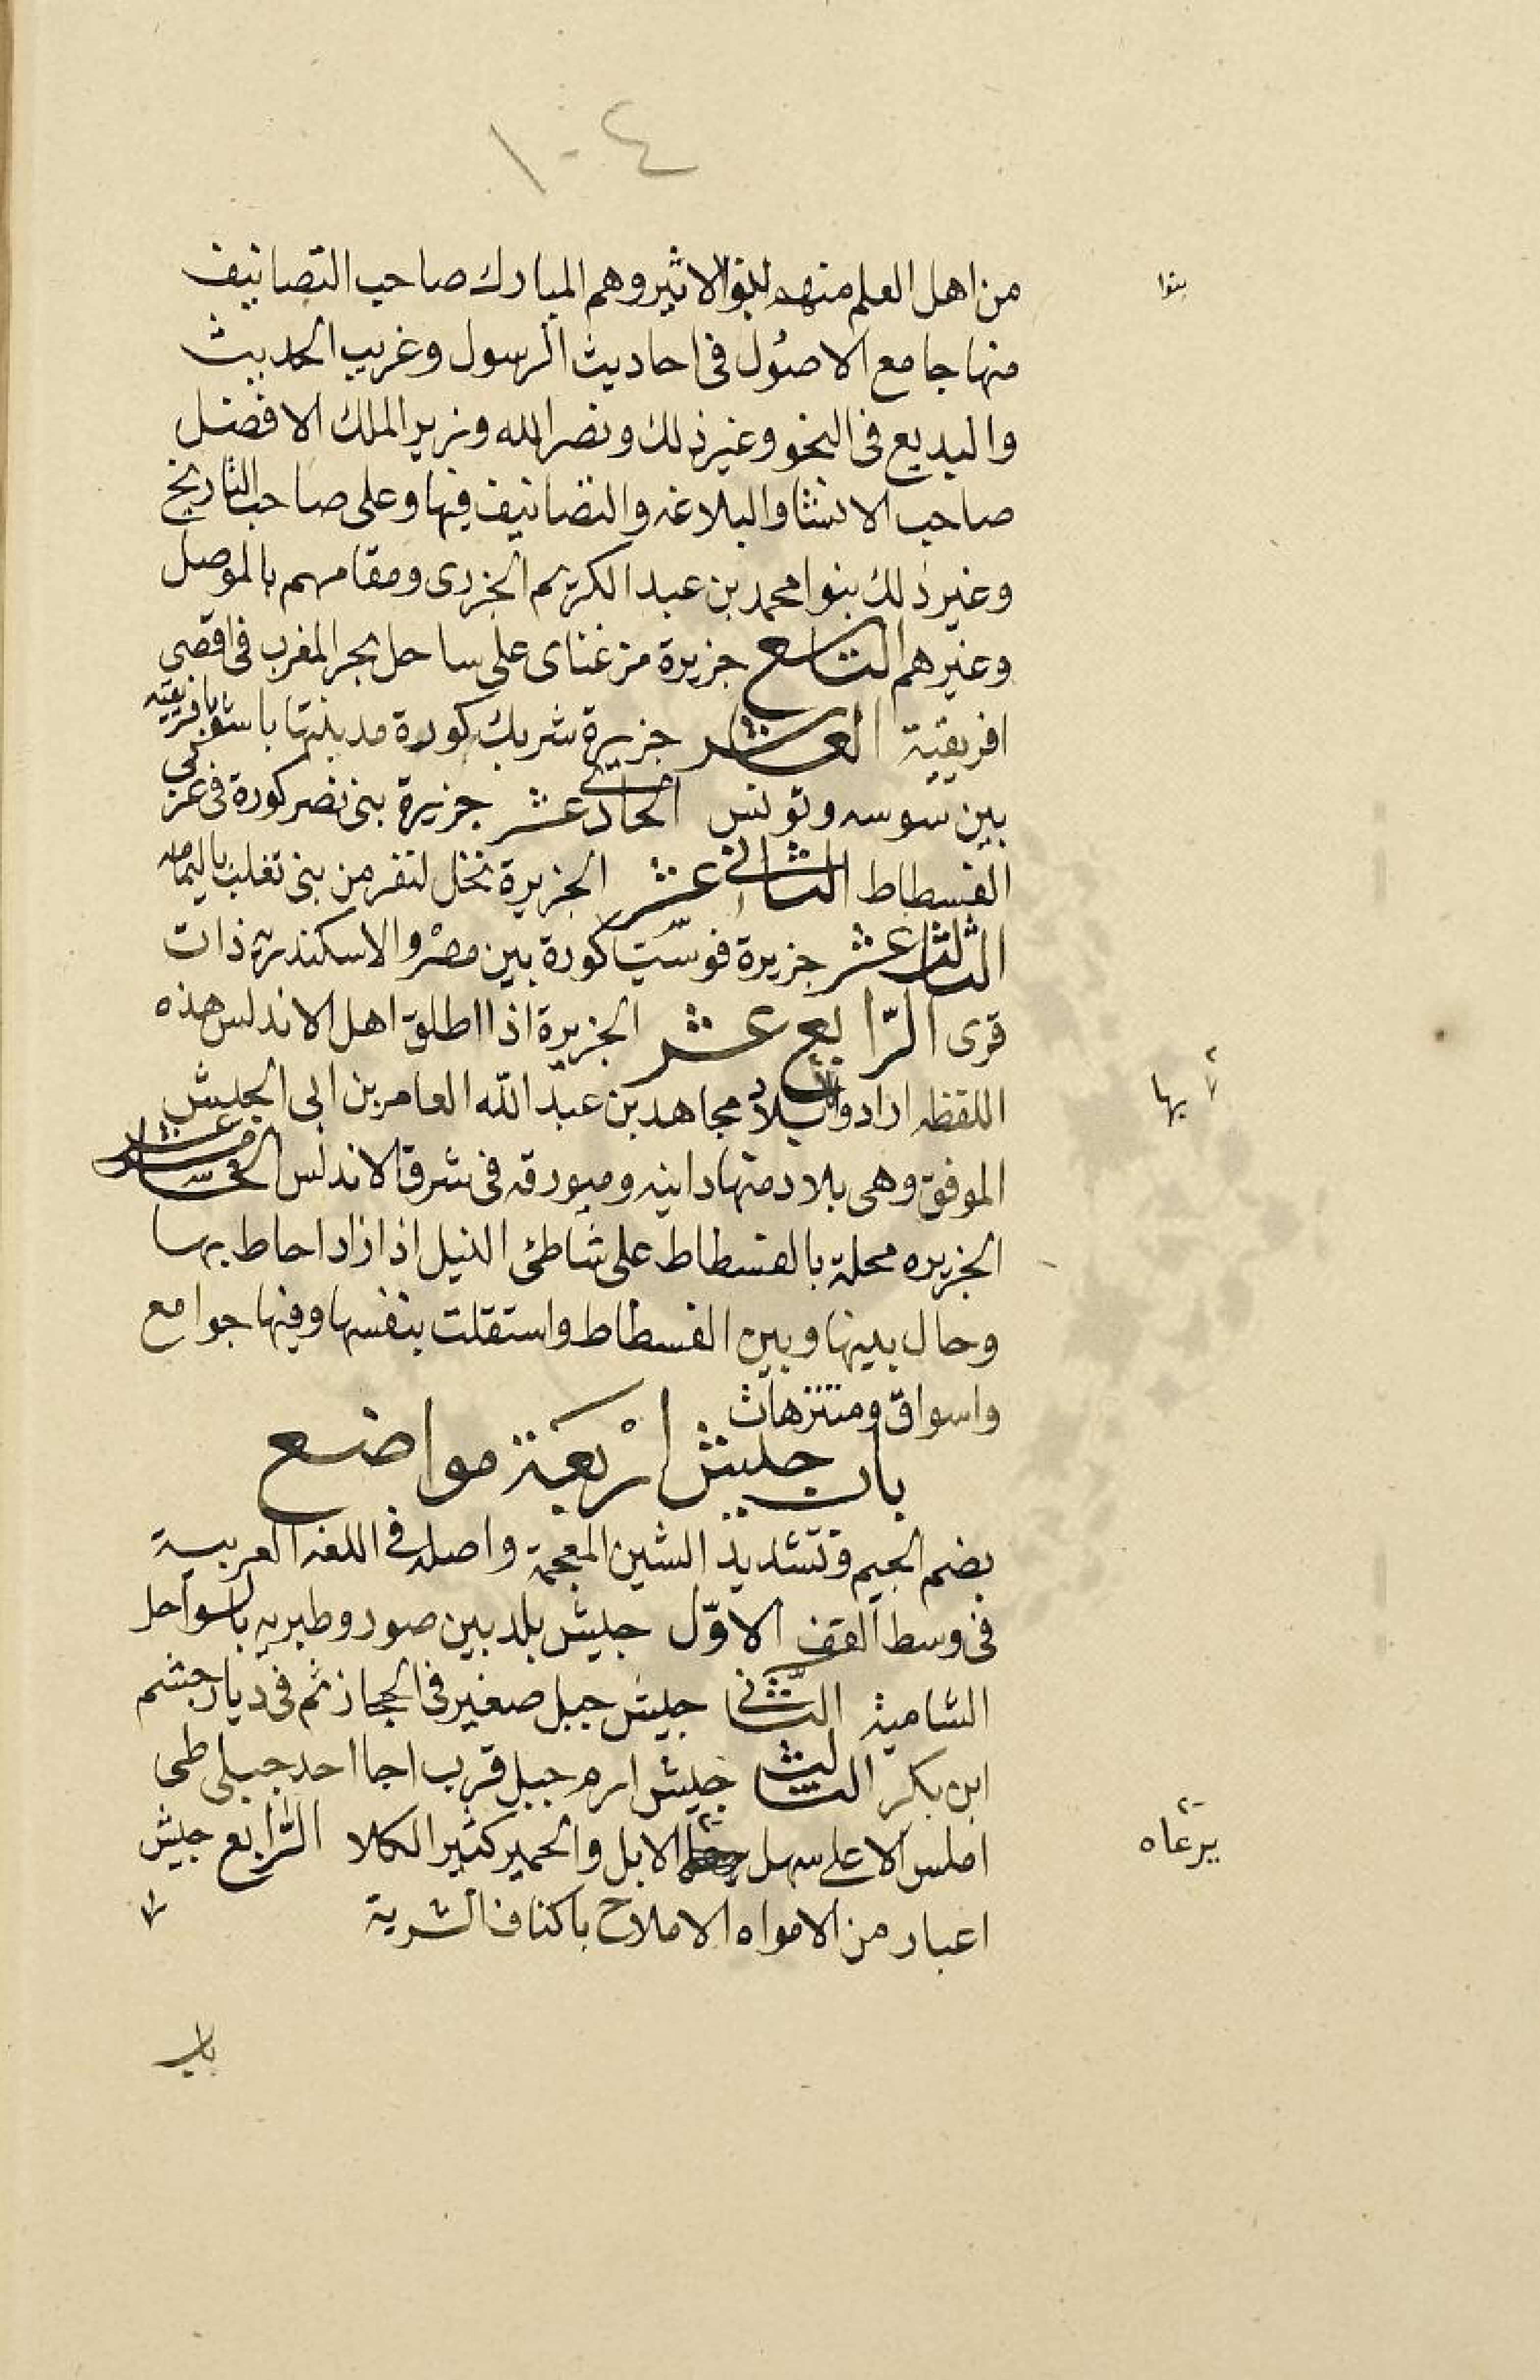 ١٠٤
من اهل العلم منهم بنوا الاثير وهم المبارك صاحب التصانيف
بنوا
منها جامع الاصول فى احاديث الرسول وغريب الحديث
والبديع فى النحو وغير ذلك ونصر الله وزير الملك الافضل
صاحب الانشا والبلاغه والتصانيف فيها وعلى صاحب التاريخ
وغير ذلك بنوا محمد بن عبد الكريم الجزرى ومقامهم بالموصل
وغيرهم التاسع جزيرة مزغناى على ساحل بحر المغرب فى اقصى
افريقية العاشر جزيرة شريك كورة مدينتها باشو بافريقيه
بين سوسه وتونس الحادى عشر جزيرة بنى نصر كورة فى غربى
الفسطاط الثانى عشر الجزيرة نخل لنفر من بنى تغلب باليمامه
الثالث عشر جزيرة قوسنيا كورة بين مصر والاسكندرية ذات
قرى الرابع عشر الجزيرة اذا اطلق اهل الاندلس هذه
اللفظه ارادوا بلاد مجاهد بن عبد الله العامر بن ابى الجيش
بها
الموفق وهى بلاد منها دانيه وميورقه فى شرق الاندلس الخامس عشر
الجزيره محلة بالفسطاط على شاطئ النيل اذا زاد احاط بها
وحال بينها وبين الفسطاط واستقلت بنفسها وفيها جوامع
واسواق ومنتزهات
باب جيش اربعة مواضع
بضم الجيم وتشديد الشين المعجمة واصله فى اللغه العربية
فى وسط القف الاول جيش بلد بين صور وطبريه بالسواحل
الشامية الثانى جيش جبل صغير فى الحجاز ثم فى ديار جشم
ابن بكر الثالث جيش ارم جبل قرب اجا احد جبلى طى
املس الاعلى سهل الابل والحمير كثير الكلا الرابع جيش
يرعاه
اعيار من الامواه الاملاح باكناف الشرية
باب